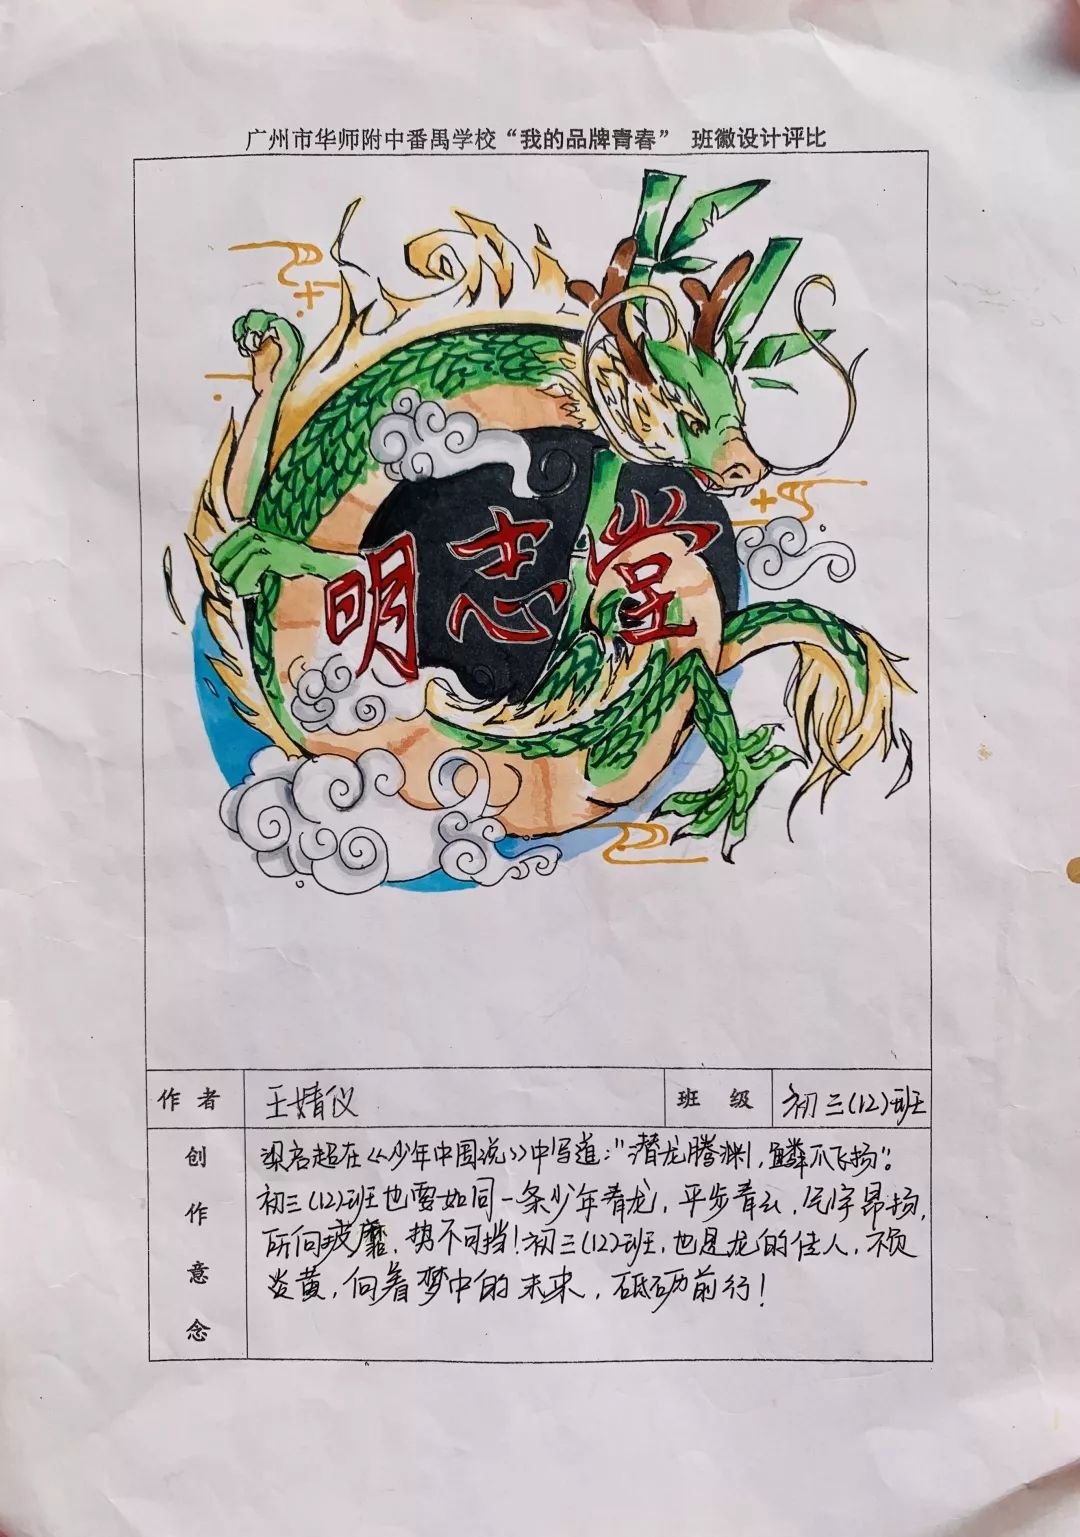 广州市华师附中番禺学校“我的品牌青春” 班徽设计评比
明志堂
作者 王婧仪 班级 初三(12)班
创作意念
梁启超在《少年中国说》中写道:"潜龙腾渊,鳞爪飞扬"。
初三(12)班也要如同一条少年青龙,平步青云,气宇昂扬,
所向披靡,势不可挡!初三(12)班,也是龙的佳人,不负
炎黄,向着梦中的未来,砥砺前行!